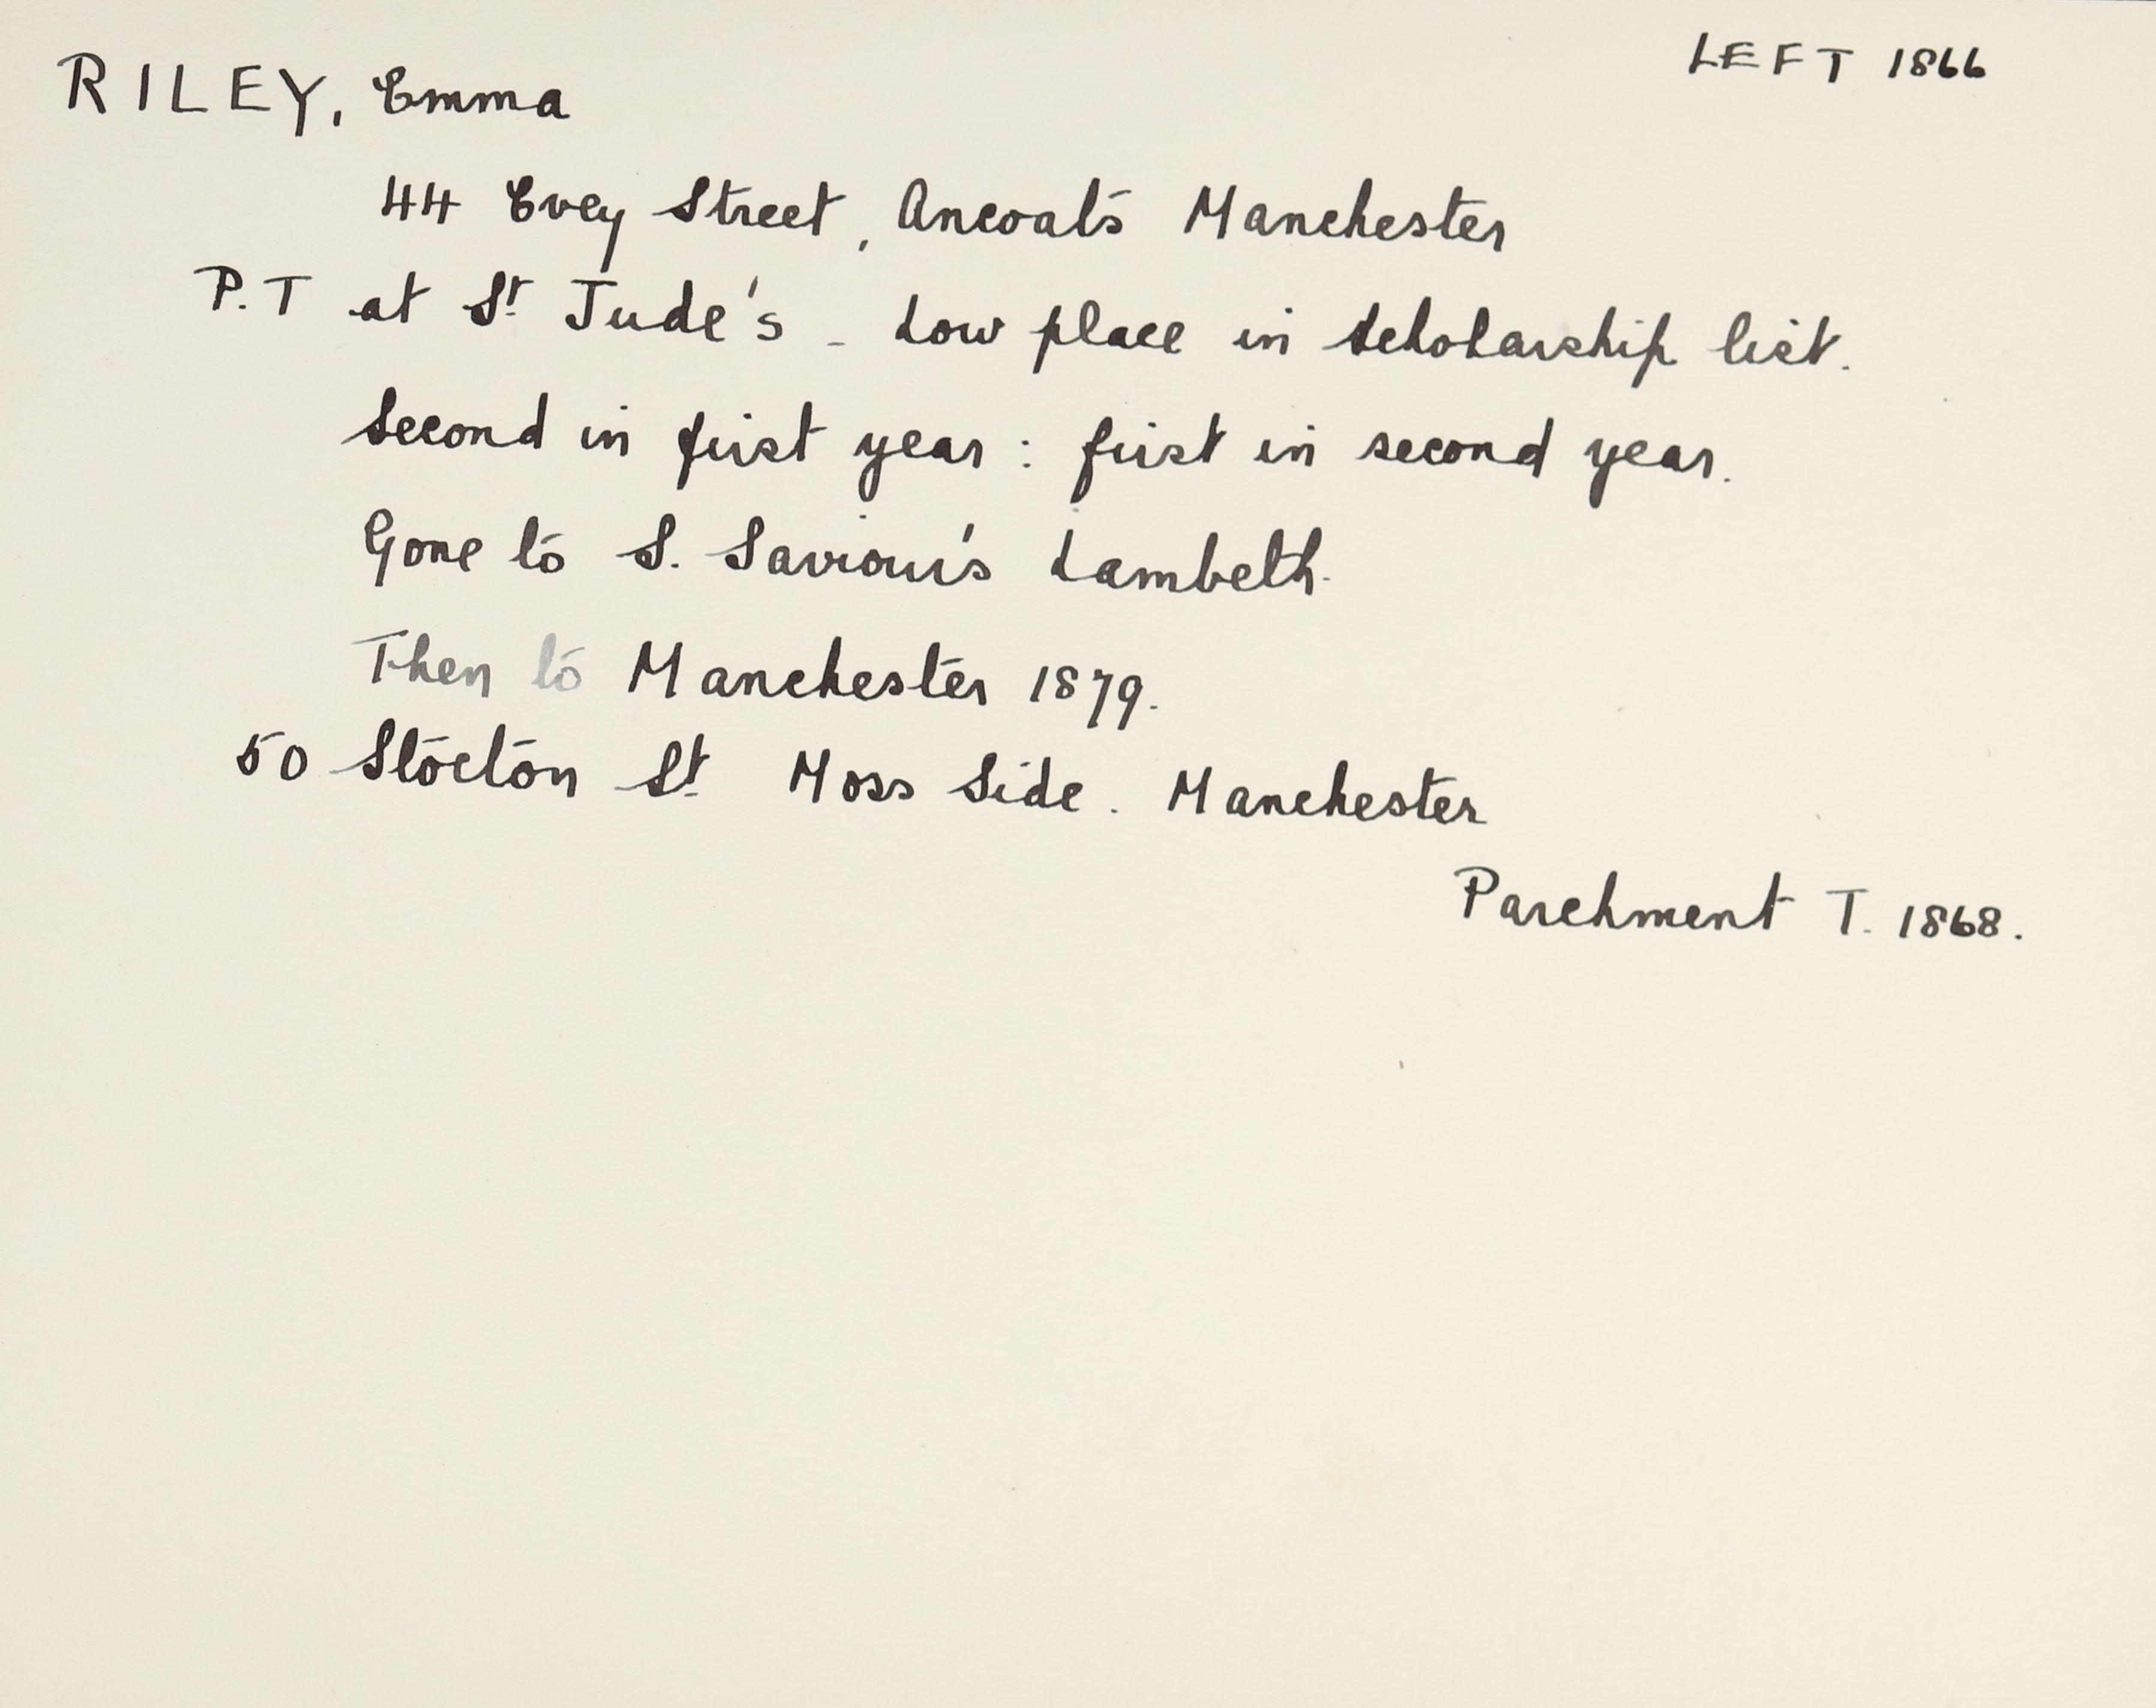 RILEY, Emma LEFT 1866
44 Evey Street, Ancoats Manchester
P.T at St Jude's - Low place in Scholarship list.
Second in first year : first in second year.
Gone to S. Saviour's Lambeth.
Then to Manchester 1879.
50 Stocton St Moss Side. Manchester
Parchment T. 1868.